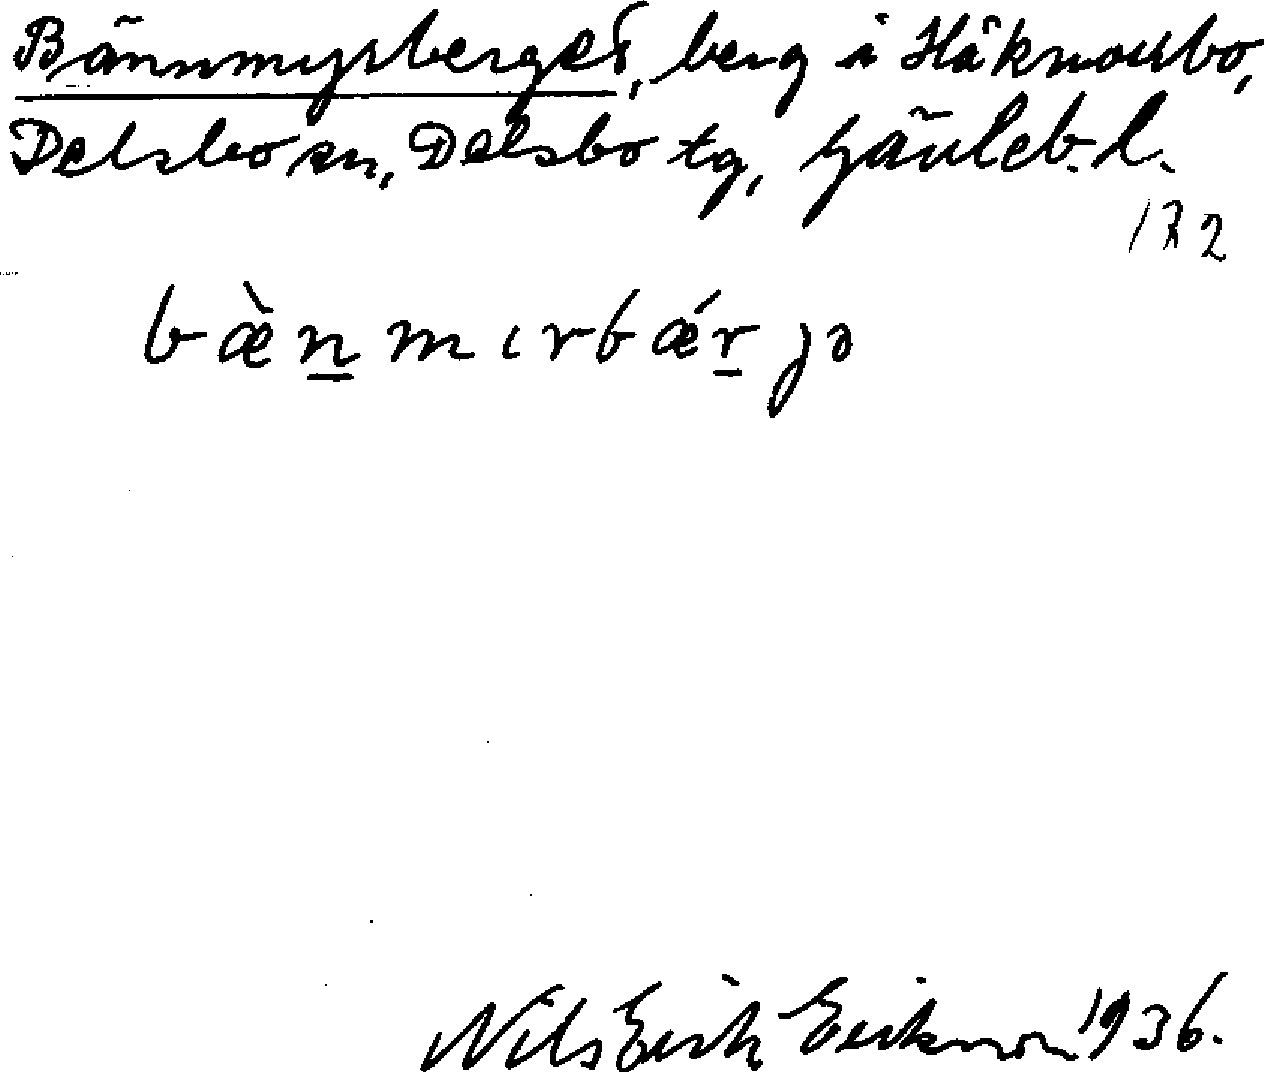 Bännmyrberget, berg i Håknorbo,
Delsbo sn, Delsbo tg, Gävleb. l.
172
bæ̀n̲mɩrbǽr̲jə
Nils Erik Eriksson 1936.